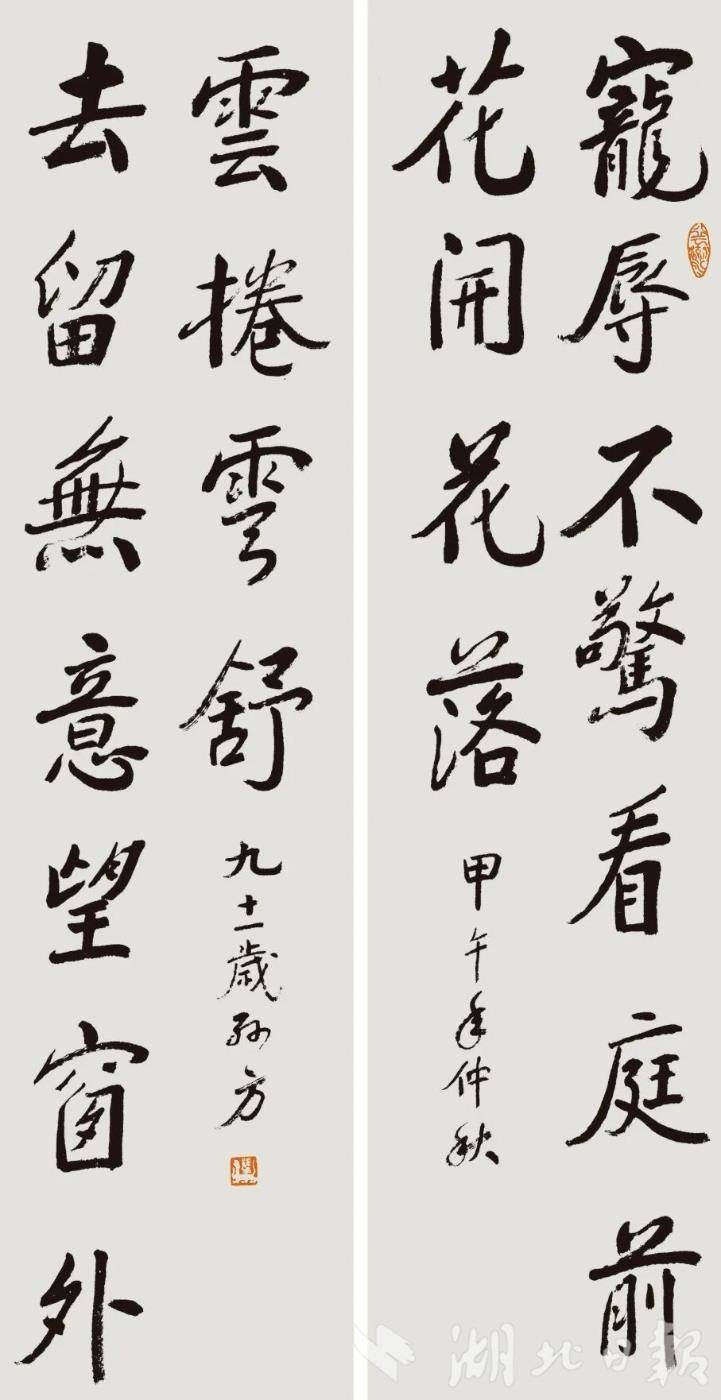 寵辱不驚看庭前
花開花落
甲午年仲秋
去留無意望窗外
雲捲雲舒
九十一歲孫方
湖北日報